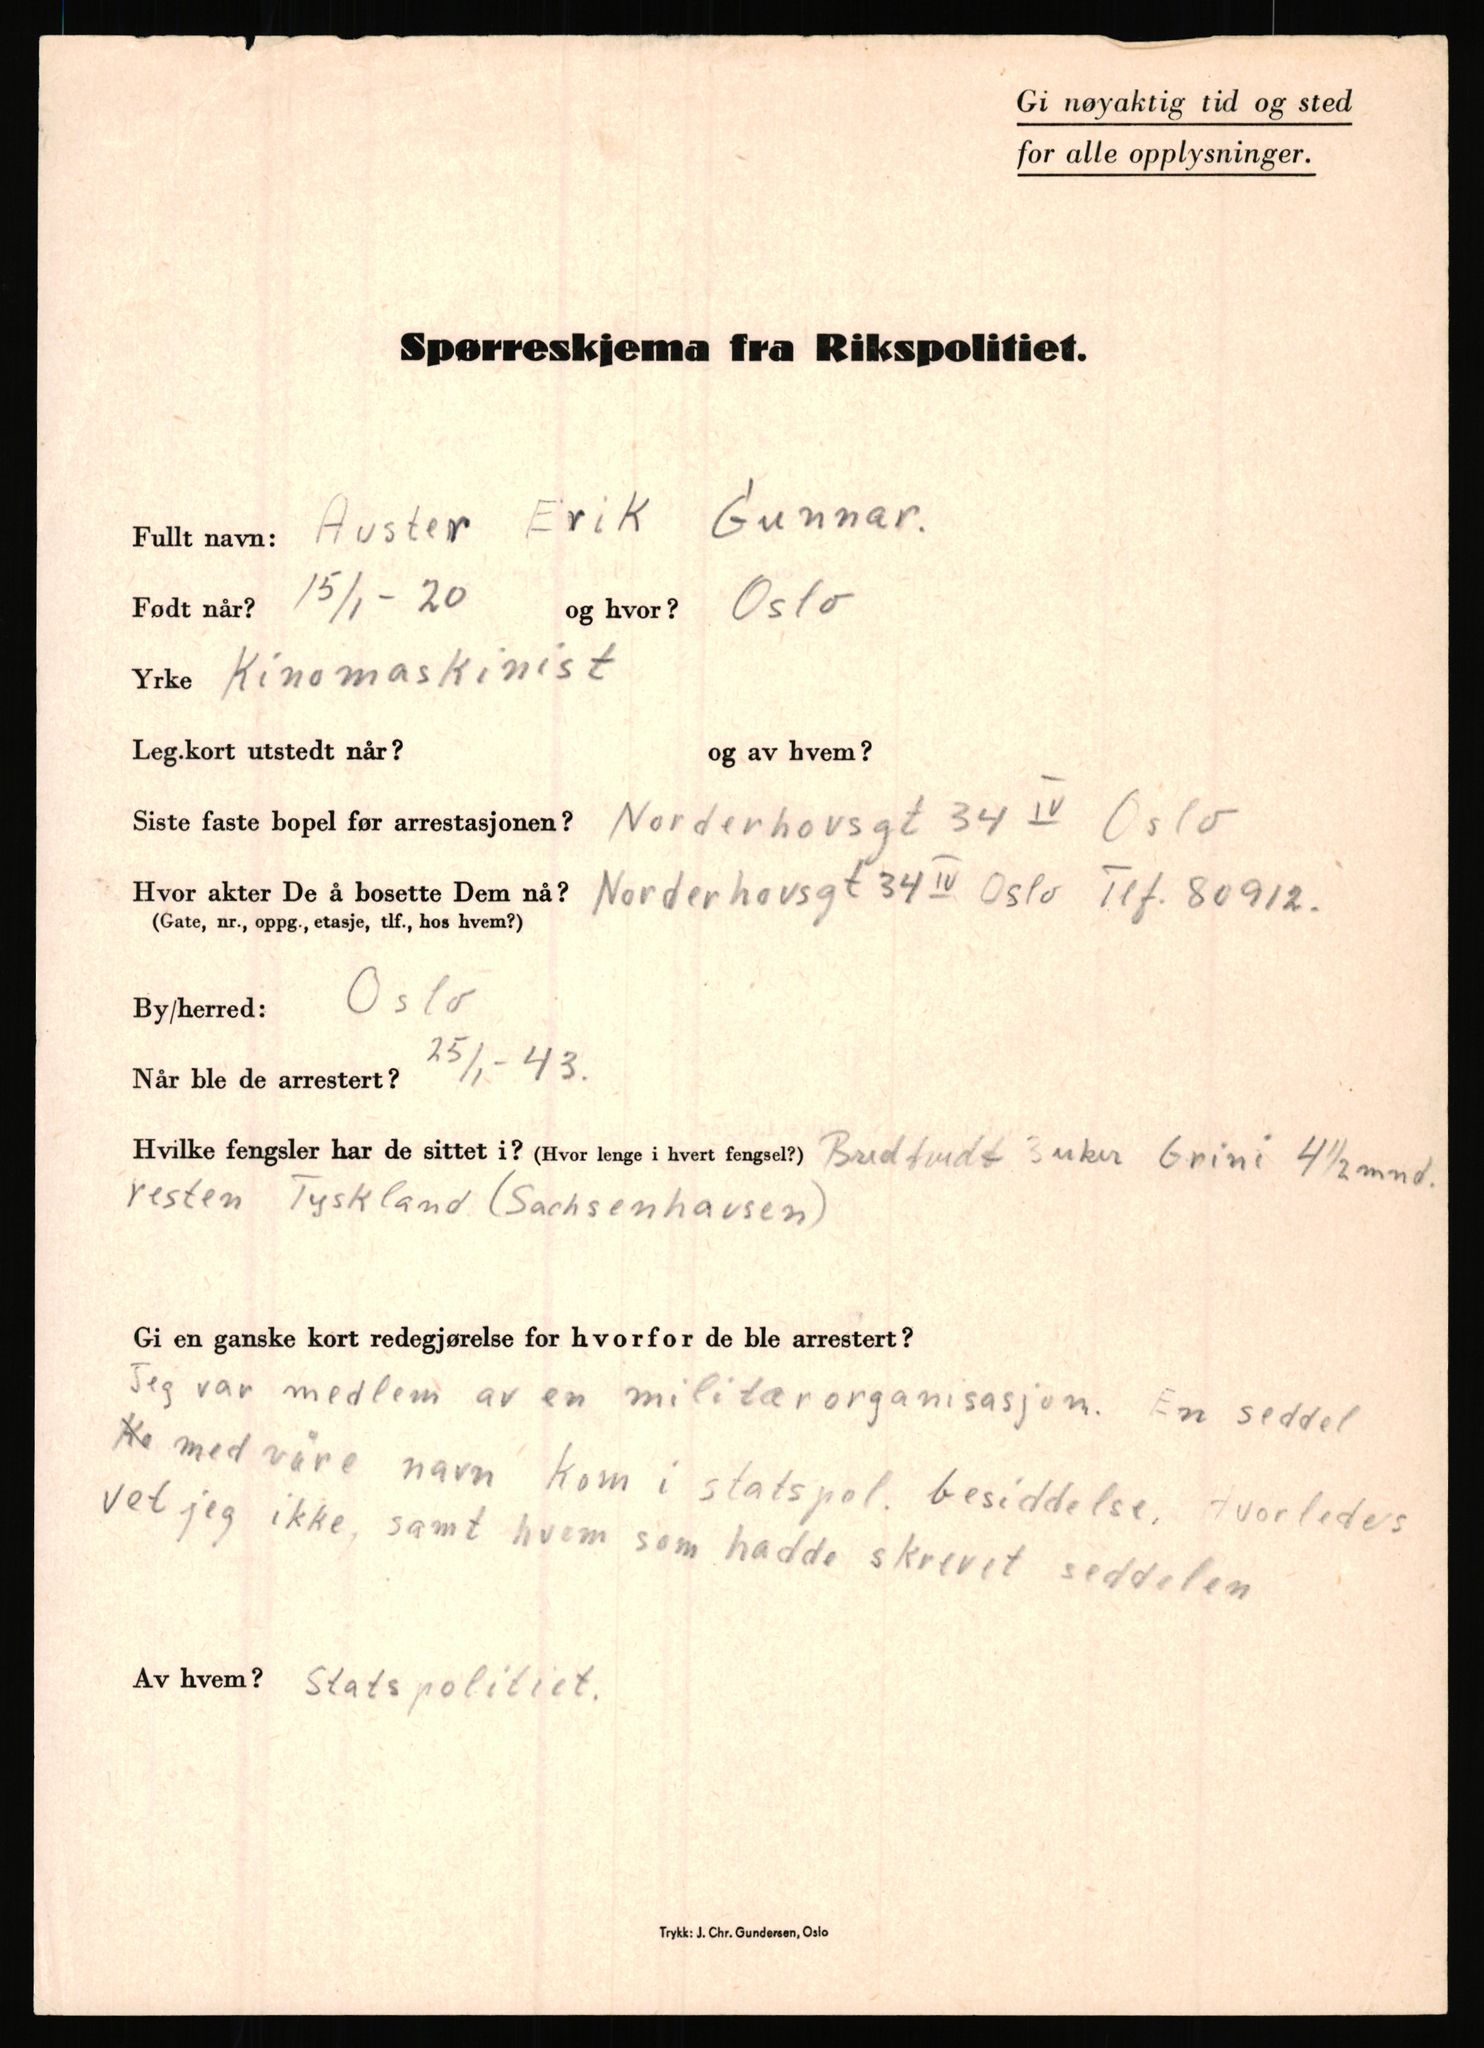 Gi nøyaktig tid og sted
for alle opplysninger.
Spørreskjema fra Rikspolitiet.
Fullt navn: Auster Erik Gunnar.
Født når? 15/1 - 20 og hvor? Oslo
Yrke Kinomaskinist
Leg.kort utstedt når? og av hvem?
Siste faste bopel før arrestasjonen? Norderhovsgt 34 IV Oslo
Hvor akter De å bosette Dem nå? Norderhovsgt 34 IV Oslo Tlf. 80912.
(Gate, nr., oppg., etasje, tlf., hos hvem?)
By/herred: Oslo
Når ble de arrestert? 25/1 - 43.
Hvilke fengsler har de sittet i? (Hvor lenge i hvert fengsel?) Bredtvedt 3 uker Grini 4 1/2 mnd.
resten Tyskland (Sachsenhausen)
Gi en ganske kort redegjørelse for hvorfor de ble arrestert?
Jeg var medlem av en militærorganisasjon. En seddel
med våre navn kom i statspol. besiddelse. Hvorledes
vet jeg ikke, samt hvem som hadde skrevet seddelen
Av hvem? Statspolitiet.
Trykk: J. Chr. Gundersen, Oslo